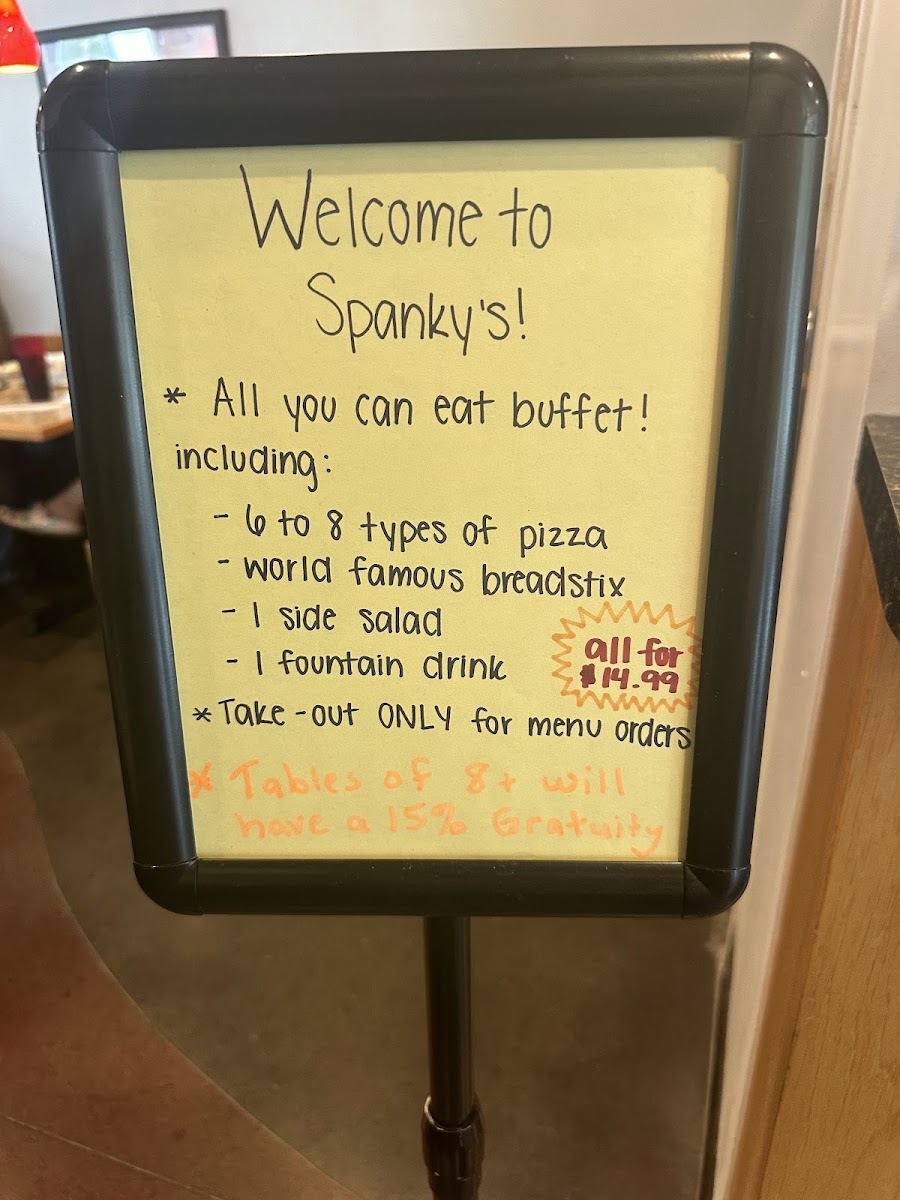 Welcome to
Spanky's!
* All you can eat buffet!
including:
- 6 to 8 types of pizza
- world famous breadstix
- 1 side salad
- 1 fountain drink
all for
$14.99
* Take-out ONLY for menu orders
* Tables of 8+ will
have a 15% Gratuity